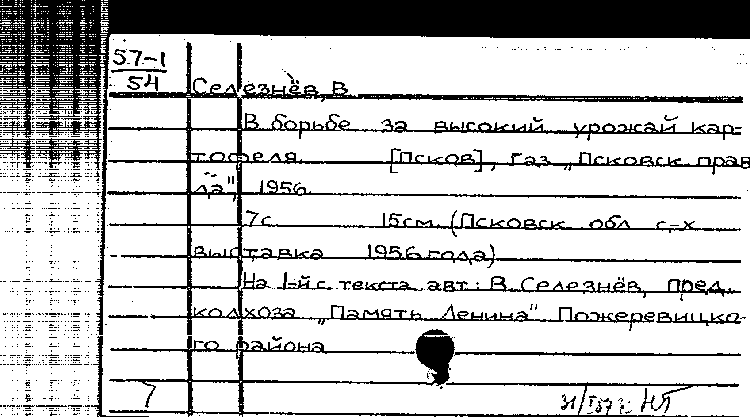 57-1
54
Селезнёв, В.
В борьбе за высокий урожай кар-
тофеля. [Псков], газ. „Псковск. прав
да", 1956.
7с. 15см. (Псковск. обл. с.-х.
выставка 1956 года)
На 1-й с. текста авт.: В. Селезнёв, пред.
колхоза „Память Ленина" Пожеревицко-
го района
7